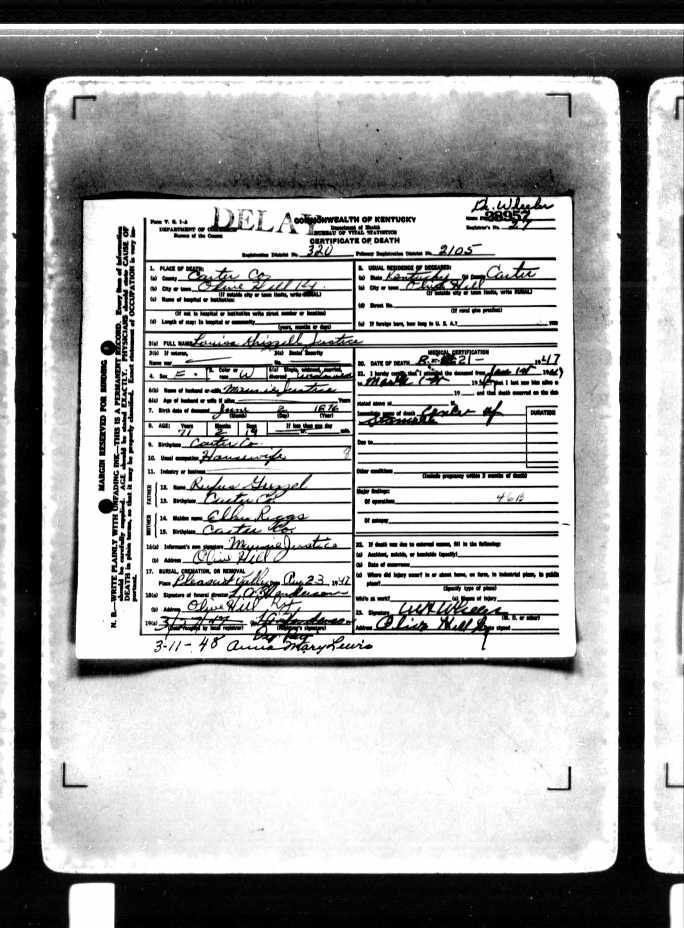 Dr. Wheeler
Form V. S. 1-A
DELAY
COMMONWEALTH OF KENTUCKY
28957
DEPARTMENT OF COMMERCE
Department of Health
Registrar's No. 27
Bureau of the Census
BUREAU OF VITAL STATISTICS
CERTIFICATE OF DEATH
Registration District No. 320
Primary Registration District No. 2105
MARGIN RESERVED FOR BINDING
N. B.—WRITE PLAINLY WITH UNFADING INK—THIS IS A PERMANENT RECORD. Every item of information
should be carefully supplied. AGE should be stated EXACTLY. PHYSICIANS should state CAUSE OF
DEATH in plain terms, so that it may be properly classified. Exact statement of OCCUPATION is very im-
portant.
1. PLACE OF DEATH:
(a) County Carter Co.
(b) City or town Olive Hill Ky.
(If outside city or town limits, write RURAL)
(c) Name of hospital or institution:
(If not in hospital or institution write street number or location)
(d) Length of stay: In hospital or community
(years, months or days)
2. USUAL RESIDENCE OF DECEASED:
(a) State Kentucky (b) County Carter
(c) City or town Olive Hill
(If outside city or town limits, write RURAL)
(d) Street No.
(If rural give precinct)
(e) If foreign born, how long in U. S. A.? years
3(a) FULL NAME Louisa Grizzell Justice
3(b) If veteran,
3(c) Social Security
Name war
No.
4. Sex F.
5. Color or race W
6(a) Single, widowed, married, divorced
6(b) Name of husband or wife Justice
6(c) Age of husband or wife if alive Years
7. Birth date of deceased June 2 1876
(Month) (Day) (Year)
8. AGE: Years Months Days If less than one day
71 2 19
9. Birthplace Carter Co.
10. Usual occupation Housewife
11. Industry or business
FATHER
12. Name Rufus Grizzel
13. Birthplace Carter Co.
MOTHER
14. Maiden name Ellen Riggs
15. Birthplace Carter Co.
16(a) Informant's own signature Justice
(b) Address Olive Hill
17. BURIAL, CREMATION, OR REMOVAL
Place Pleasant Valley Date Aug 23, 1947
18(a) Signature of funeral director Henderson
(b) Address Olive Hill Ky.
19(a)
(Date received by local registrar) (Registrar's signature)
Dep Reg
3-11-48 Anna Mary Lewis
MEDICAL CERTIFICATION
20. DATE OF DEATH 21 1947
21. I hereby certify that I attended the deceased from Jan 1st
to March that I last saw him alive on
19 and that death occurred on the date
stated above at M.
Immediate cause of death Cancer of
Stomach
DURATION
Due to
Other conditions
(Include pregnancy within 3 months of death)
Major findings:
Of operations 46B
Of autopsy
22. If death was due to external causes, fill in the following:
(a) Accident, suicide, or homicide (specify)
(b) Date of occurrence
(c) Where did injury occur? In or about home, on farm, in industrial place, in public
place?
(Specify type of place)
While at work? (e) Means of injury
23. Signature Wheeler
(M. D. or other)
Address Olive Hill Ky Date signed